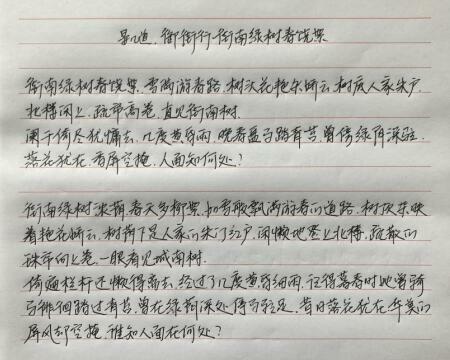 晏几道.御街行·街南绿树春饶絮
街南绿树春饶絮.雪满游春路.树头花艳杂娇云.树底人家朱户.
北楼闲上.疏帘高卷.直见街南树.
阑干倚尽犹慵去.几度黄昏雨.晚春盘马踏青苔.曾傍绿阴深驻.
落花犹在.香屏空掩.人面知何处?
街南绿树浓荫春天多柳絮.如雪般飘满游春的道路.树顶繁映
着艳花娇云.树荫下是人家的朱门红户.闲懒地登上北楼.疏散的
珠帘向上卷一眼看见城南树.
倚遍栏杆还懒得离去.经过了几度黄昏细雨.记得暮春时她曾骑
马徘徊踏过青苔.曾在绿荫深处停马驻足.昔日落花犹在华美的
屏风却空掩.谁知人面在何处?